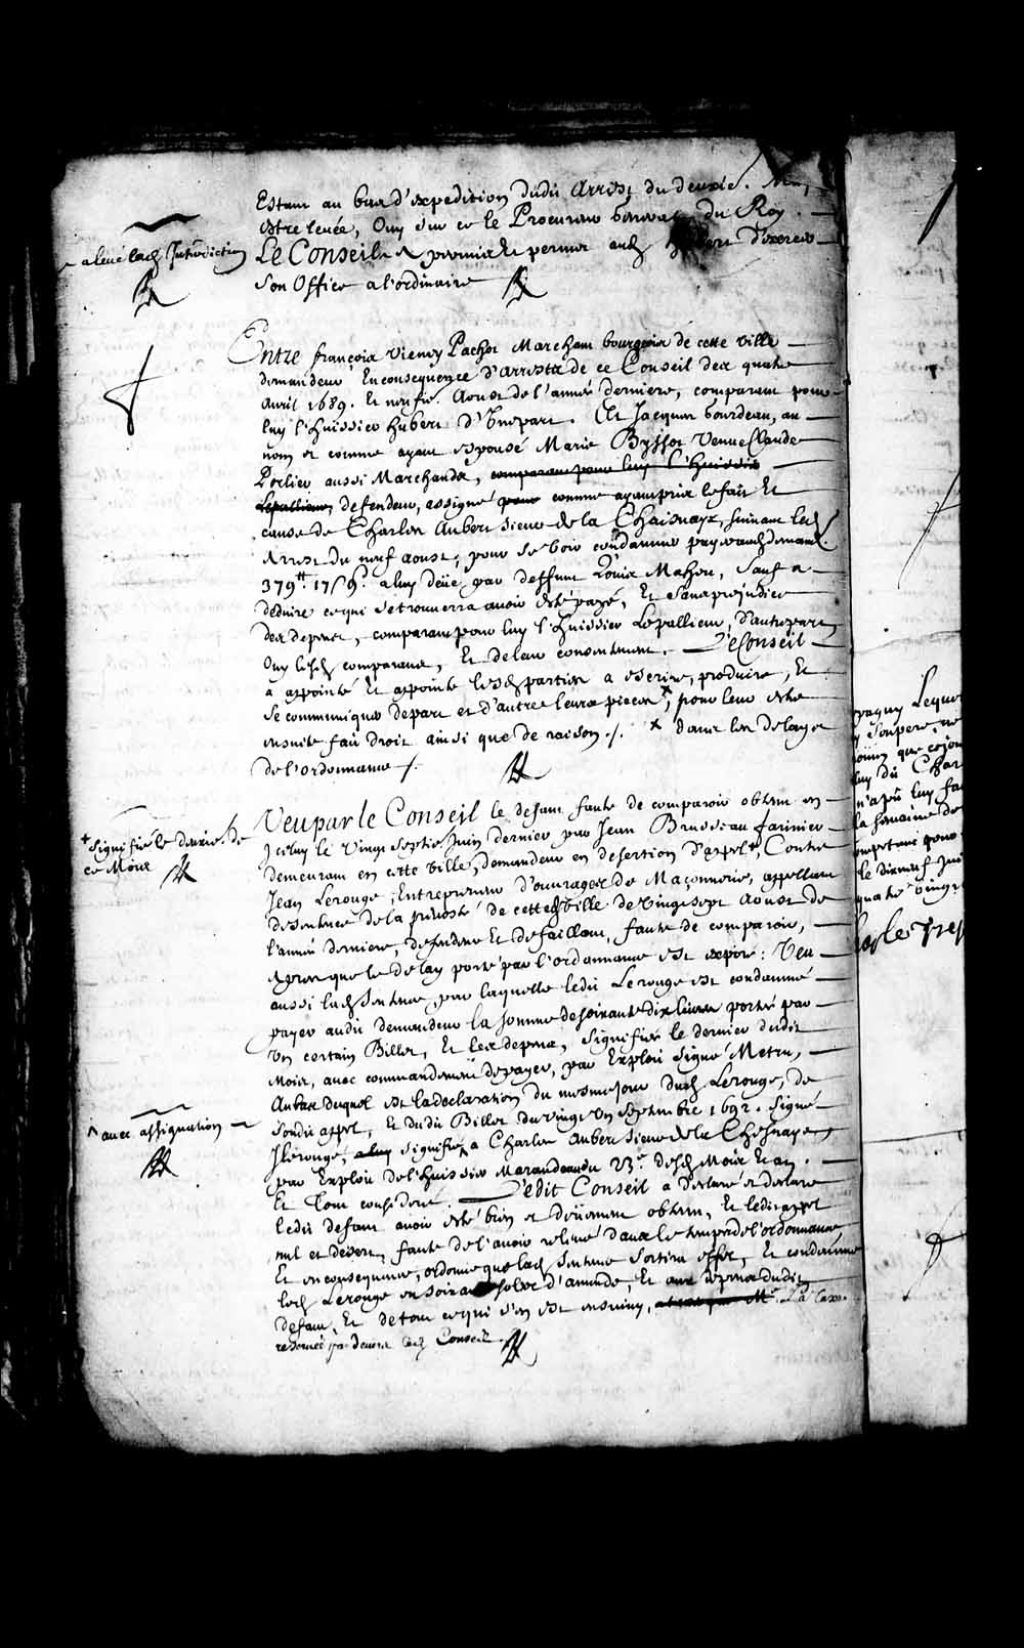 Estant au bas d'expedition dudit Arrest du deuxie.
estre levée, Ouy sur ce le Procureur general du Roy.
a levé lad. Interdiction
Le Conseil a permis et permet aud. Hubert d'exercer
son Office a l'ordinaire
Entre françois Viennay Pachot Marchant bourgeois de cette ville
demandeur En consequence d'arrests de ce Conseil des quatre
Avril 1689. Et neufie. Aoust de l'année derniere, comparant pour
luy l'huissier Hubert d'Unepart. Et Jacques bourdeau, au
nom et comme ayant espousé Marie Bissot Veuve Claude
Porlier aussi Marchande, comparant pour luy l'huissier
Lepallieur, defendeur, assigné pour comme ayant pris le fait Et
cause de Charles Aubert Sieur de la Chaisnaye, suivant led.
Arrest du neuf aoust, pour se voir condamner payer aud. demand.
379tt 17s 9d. a luy deüe par deffunt Louis Mahou, Sauf a
deduire ce qui se trouvera avoir esté payé, Et sans prejudice
des depens, comparant pour luy l'huissier Lepallieur, d'autrepart
Ouy lesd. comparans, Et de leur consentement. Le Conseil
a appointé Et appointe lesd. parties a escrire, produire, Et
se communiquer de part et d'autre leurs pieces x, pour leur estre
ensuite fait droit ainsi que de raison ./. x dans les delays
de l'ordonnance ./.
Veu par le Conseil le defaut faute de comparoir obtenu en
+ signifié le deuxie. de
ce Mois
Iceluy le Vingt septie. Juin dernier par Jean Brusseau farinier
demeurant en cette ville, demandeur en desertion d'appel +, Contre
Jean Lerouge, Entrepreneur d'ouvrages de Maçonnerie, appellant
de sentence de la prevosté de cetted. Ville de Vingt sept Aoust de
l'année derniere, defendeur Et defaillant, faute de comparoir,
apres que le delay porté par l'ordonnance est expiré: Veu
aussi lad. sentence, par laquelle ledit Lerouge est condamné
payer audit demandeur la somme de soixante dix livres porté par
Un certain Billet, Et les depens, signifiée le dernier dudit
Mois, avec commandement de payer, par Exploit signé Metru,
Au bas duquel est la declaration du mesme jour dud. Lerouge, de
^ avec assignation
son dit appel, Et dudit Billet du vingt un septembre 1692. signé
J lerouge, a luy signifié ^ a Charles Aubert Sieur de la Chesnaye
par Exploit de l'huissier Marandeau du 23e. desd. Mois Et an.
Et Tout consideré. Ledit Conseil a declaré et declare
ledit defaut avoir esté bien et deüement obtenu, Et ledit appel
nul et desert, faute de l'avoir relevé dans le temps de l'ordonnance
Et en consequence, ordonne que lad. sentence sortira effet, Et condamne
led. Lerouge en soixante solz d'amende, Et aux depens dudit
defaut, Et de tout ce qui s'en est ensuivy, La taxe
reservée par devers led. Conseil.